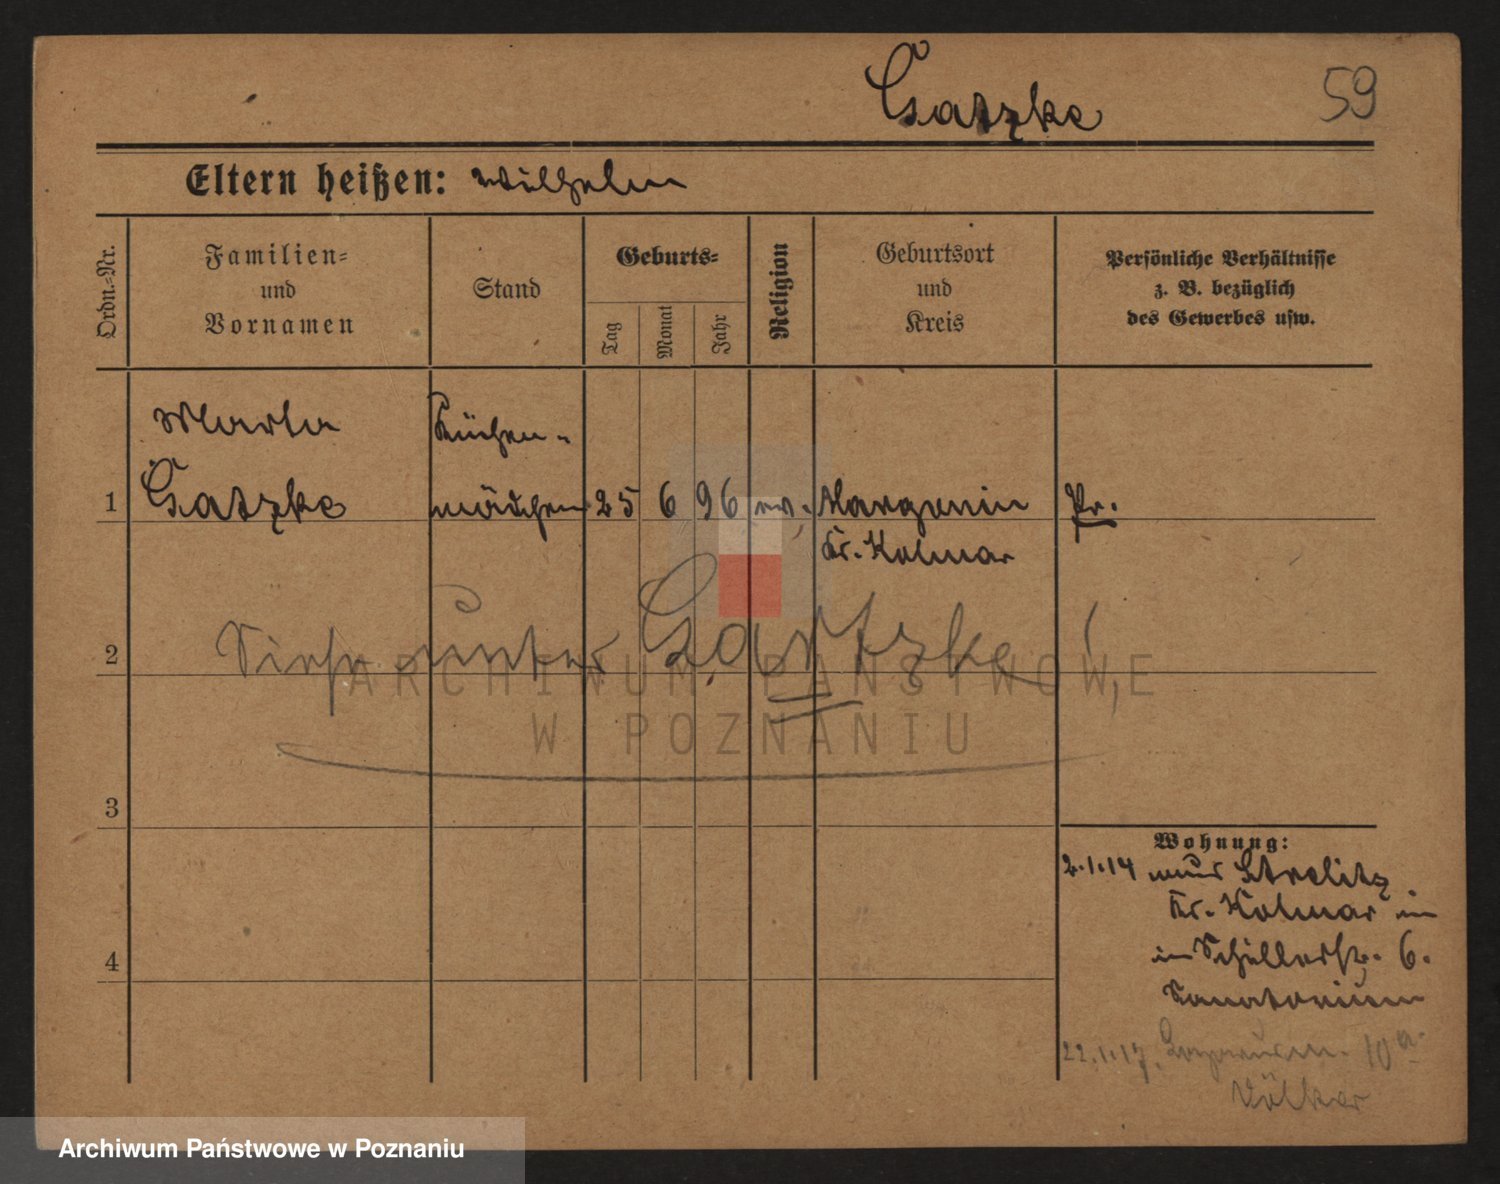 Gatzke
59
Eltern heißen: Wilhelm
Ordn.-Nr.
Familien-
und
Vornamen
Stand
Geburts-
Tag
Monat
Jahr
Religion
Geburtsort
und
Kreis
Persönliche Verhältnisse
z. B. bezüglich
des Gewerbes usw.
Marta Küchen-
1 Gatzke mädchen 25 6 96 ev. Margonin Pr.
Kr. Kolmar
2 Siehe unter Gartzke!
ARCHIWUM PAŃSTWOWE
W POZNANIU
3
Wohnung:
2.1.14 aus Strelitz
Kr. Kolmar
in Schillerstr. 6.
4
Sanatorium
22.1.17. 10a.
Völker
Archiwum Państwowe w Poznaniu